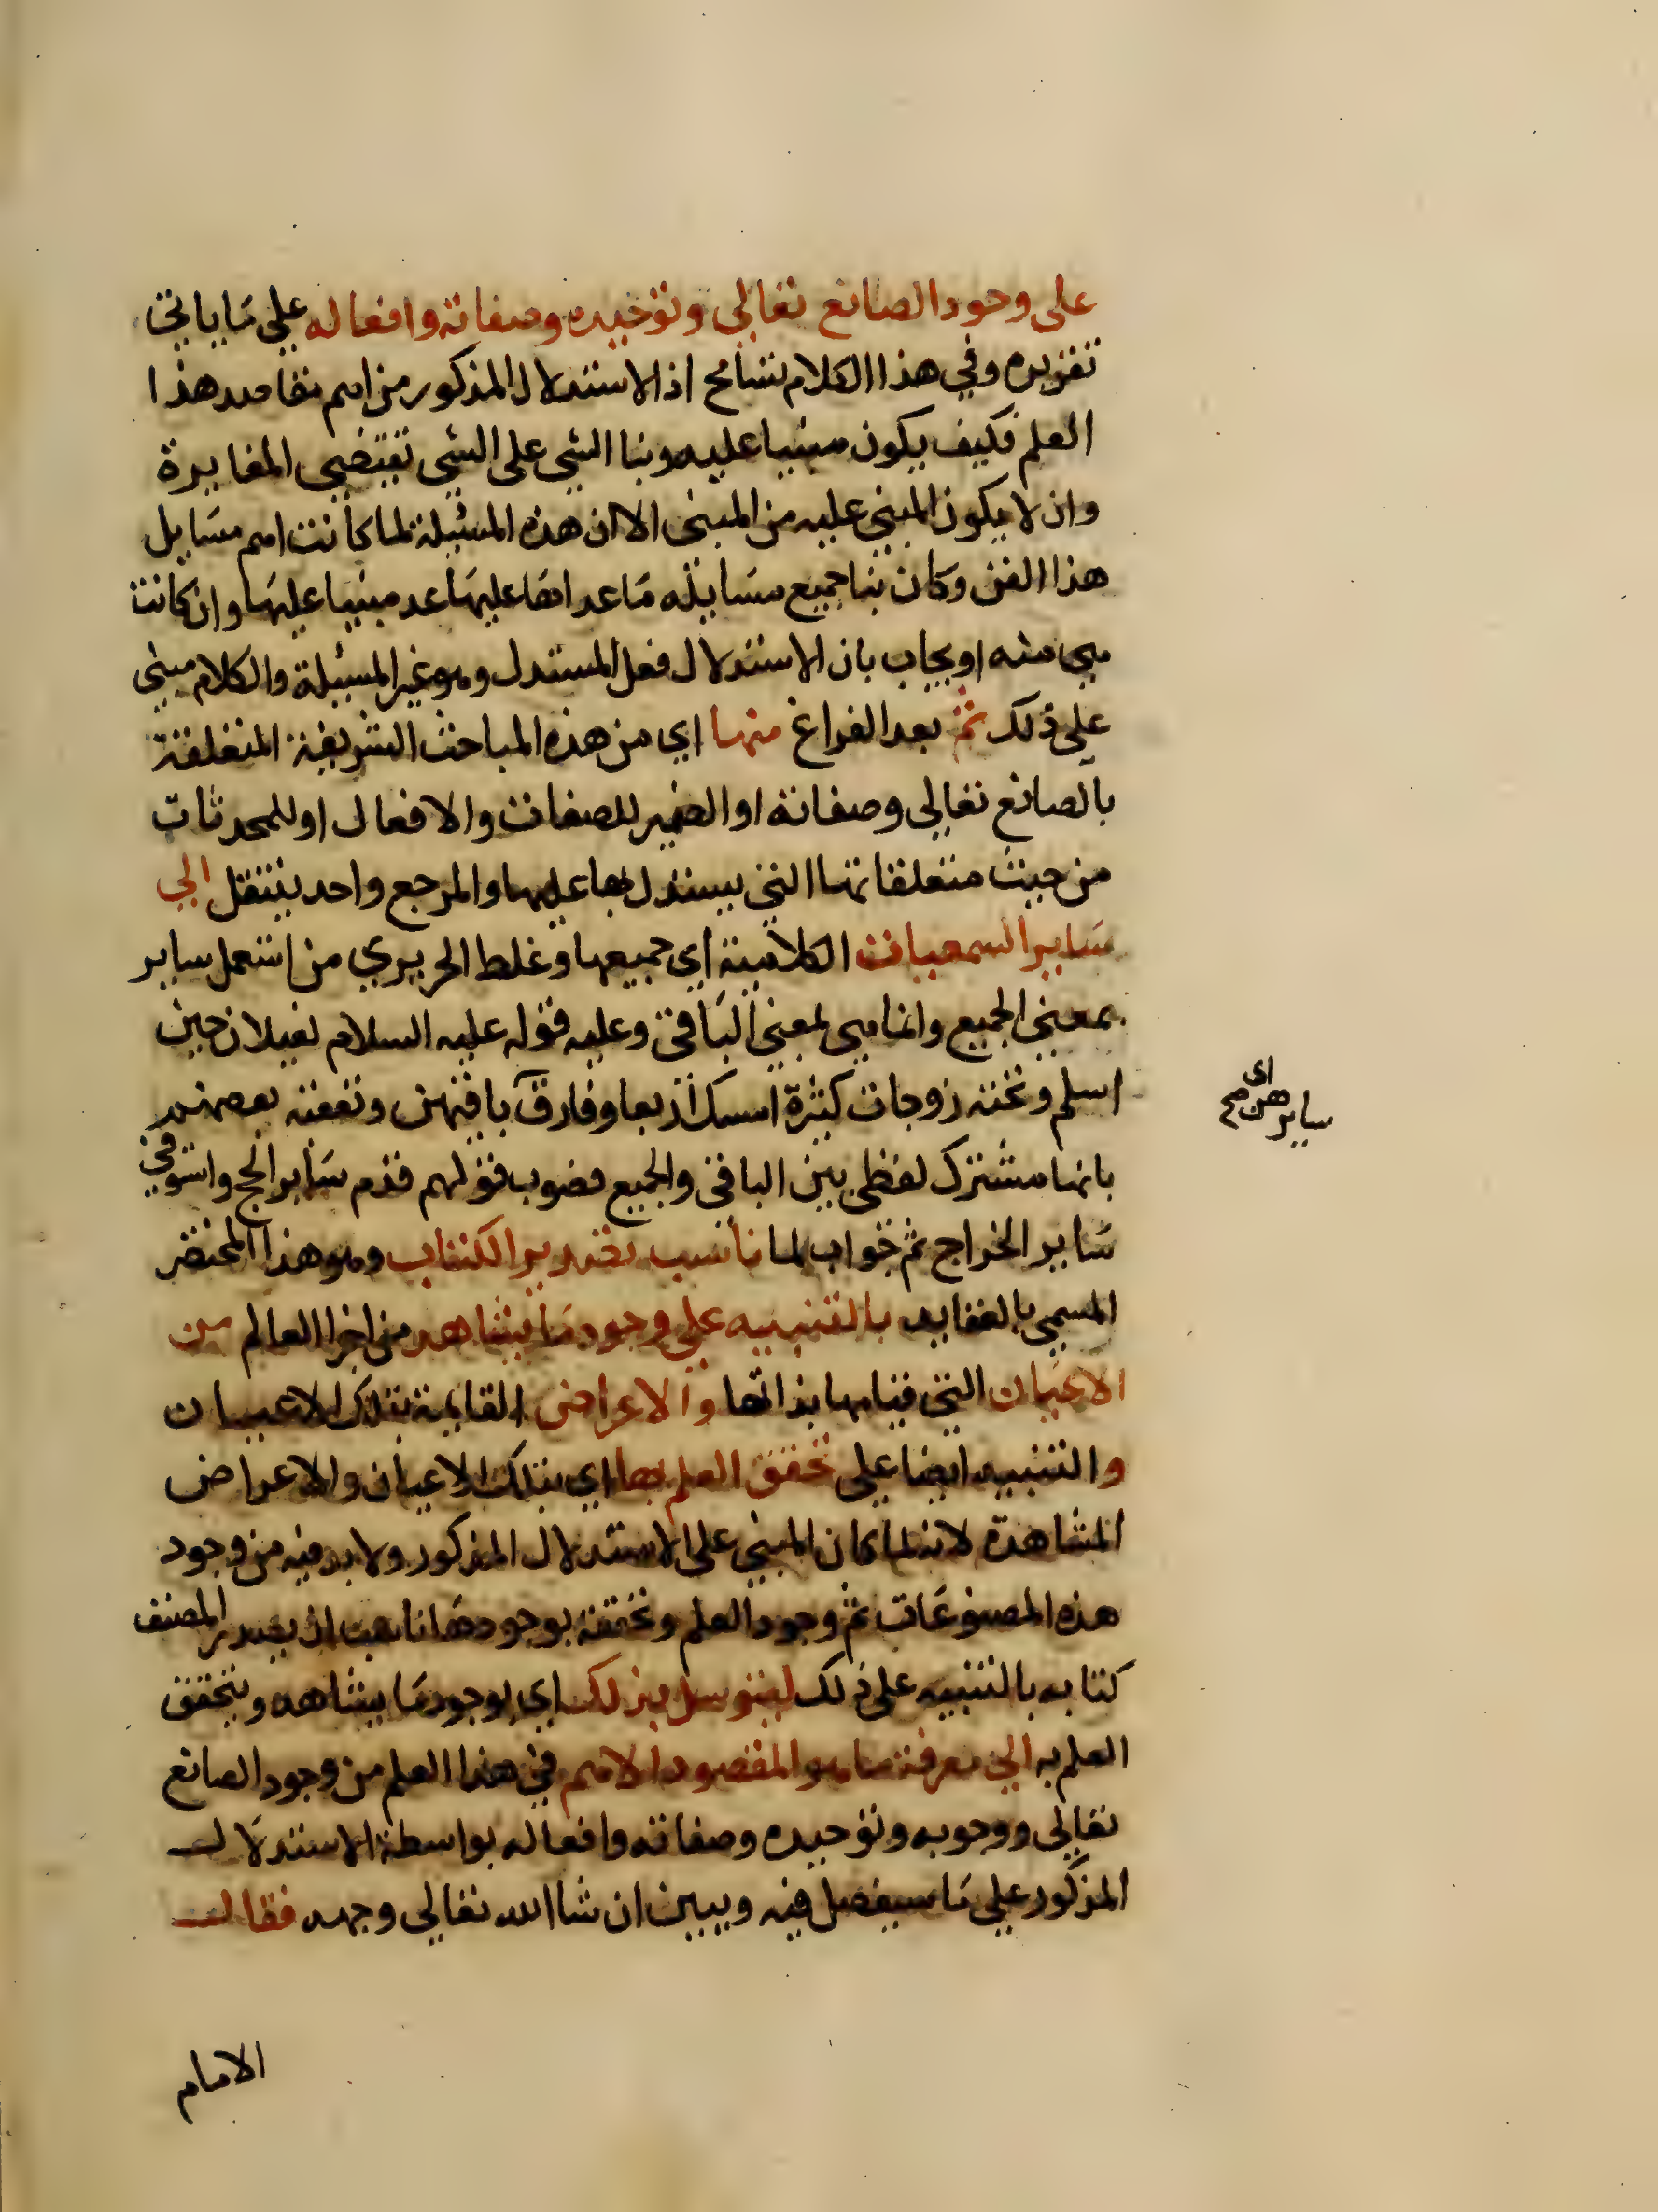 على وجود الصانع تعالى وتوحيده وصفاته وافعاله على ما ياتي
تقريره وفي هذا الكلام تسامح اذ الاستدلال المذكور من اهم مقاصد هذا
العلم فكيف يكون مبنيا عليه وبنا الشي على الشي تقتضي المغايرة
وان لا يكون المبني عليه من المبنى الا ان هذه المسئلة لما كانت اهم مسايل
هذا الفن وكان بنا جميع مسايله ما عداها عليها عد مبنيا عليها وان كانت
هي منه او يجاب بان الاستدلال فعل المستدل وهو غير المسئلة والكلام مبنى
على ذلك ثم بعد الفراغ منها اي من هذه المباحث الشريفة المتعلقة
بالصانع تعالى وصفاته او الضمير للصفات والافعال او للمحدثات
من حيث متعلقاتها التي يستدل بها عليها والمرجع واحد ينتقل الي
ساير السمعيات الكلامية اي جميعها وغلط الحريري من استعمل ساير
بمعنى الجميع وانما هي بمعنى الباقي وعليه قوله عليه السلام لغيلان حين
اسلم وتحته زوجات كثيرة امسك اربعا وفارق باقيهن وتعقبه بعضهم
اى
سايرهن صح
بانها مشترك لفظي بين الباقي والجميع فصوب قولهم قدم ساير الحج واستوفى
ساير الخراج ثم جواب لما ناسب تصدير الكتاب وهو هذا المختصر
المسمى بالعقايد بالتنبيه على وجود ما يشاهد من اجزا العالم من
الاعيان التي قيامها بذاتها والاعراض القايمة بتلك الاعيان
والتنبيه ايضا على تحقق العلم بها اي بتلك الاعيان والاعراض
المشاهدة لانه لما كان المبني على الاستدلال المذكور ولا بد فيه من وجود
هذه المصنوعات ثم وجود العلم وتحققه بوجودها ناسب ان يصدر المصنف
كتابه بالتنبيه على ذلك ليتوسل بذلك اي بوجود ما يشاهد وتحقق
العلم به الى معرفة ما هو المقصود الاهم في هذا العلم من وجود الصانع
تعالى ووجوبه وتوحيده وصفاته وافعاله بواسطة الاستدلال
المذكور على ما سيفصل فيه ويبين ان شا الله تعالى وجهه فقال
الامام